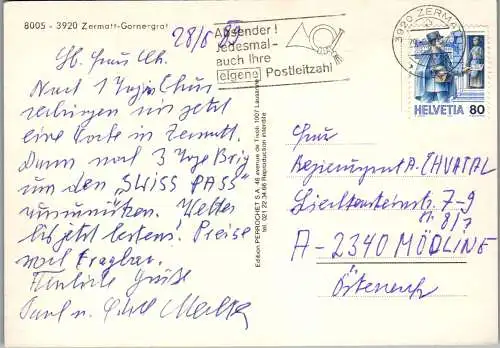 8005 - 3920 Zermatt-Gornergrat
28/6 89
Absender!
Jedesmal-
auch Ihre
eigene Postleitzahl
3920 ZERMATT
HELVETIA 80
Nach 1 Tag Chur
verbringen wir jetzt
eine Woche in Zermatt.
Dann noch 3 Tage Brig
um den "SWISS PASS"
auszunützen. Wetter
bis jetzt bestens! Preise
noch tragbar.
Herzliche Grüße
Paul u.
Edition PERROCHET S.A. 46 avenue de Tivoli 1007 Lausanne
tél. 021 22 34 66 Reproduction interdite
Herrn
Regierungsrat A. CHVATAL
Liechtensteinstr. 7-9
A-2340 MÖDLING
Österreich